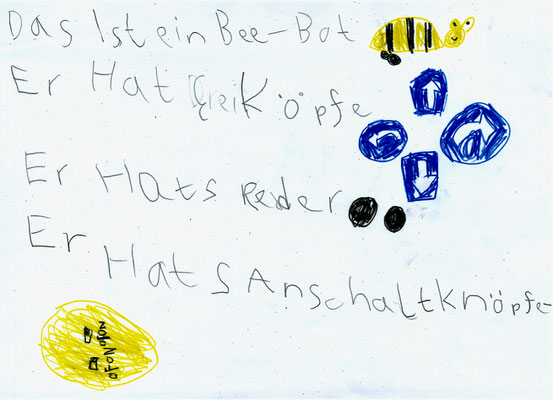 Das Ist ein Bee-Bot
Er Hat Köpfe
Er Hats Reder
Er
Hats Anschaltknöpfe
OFON
OFON